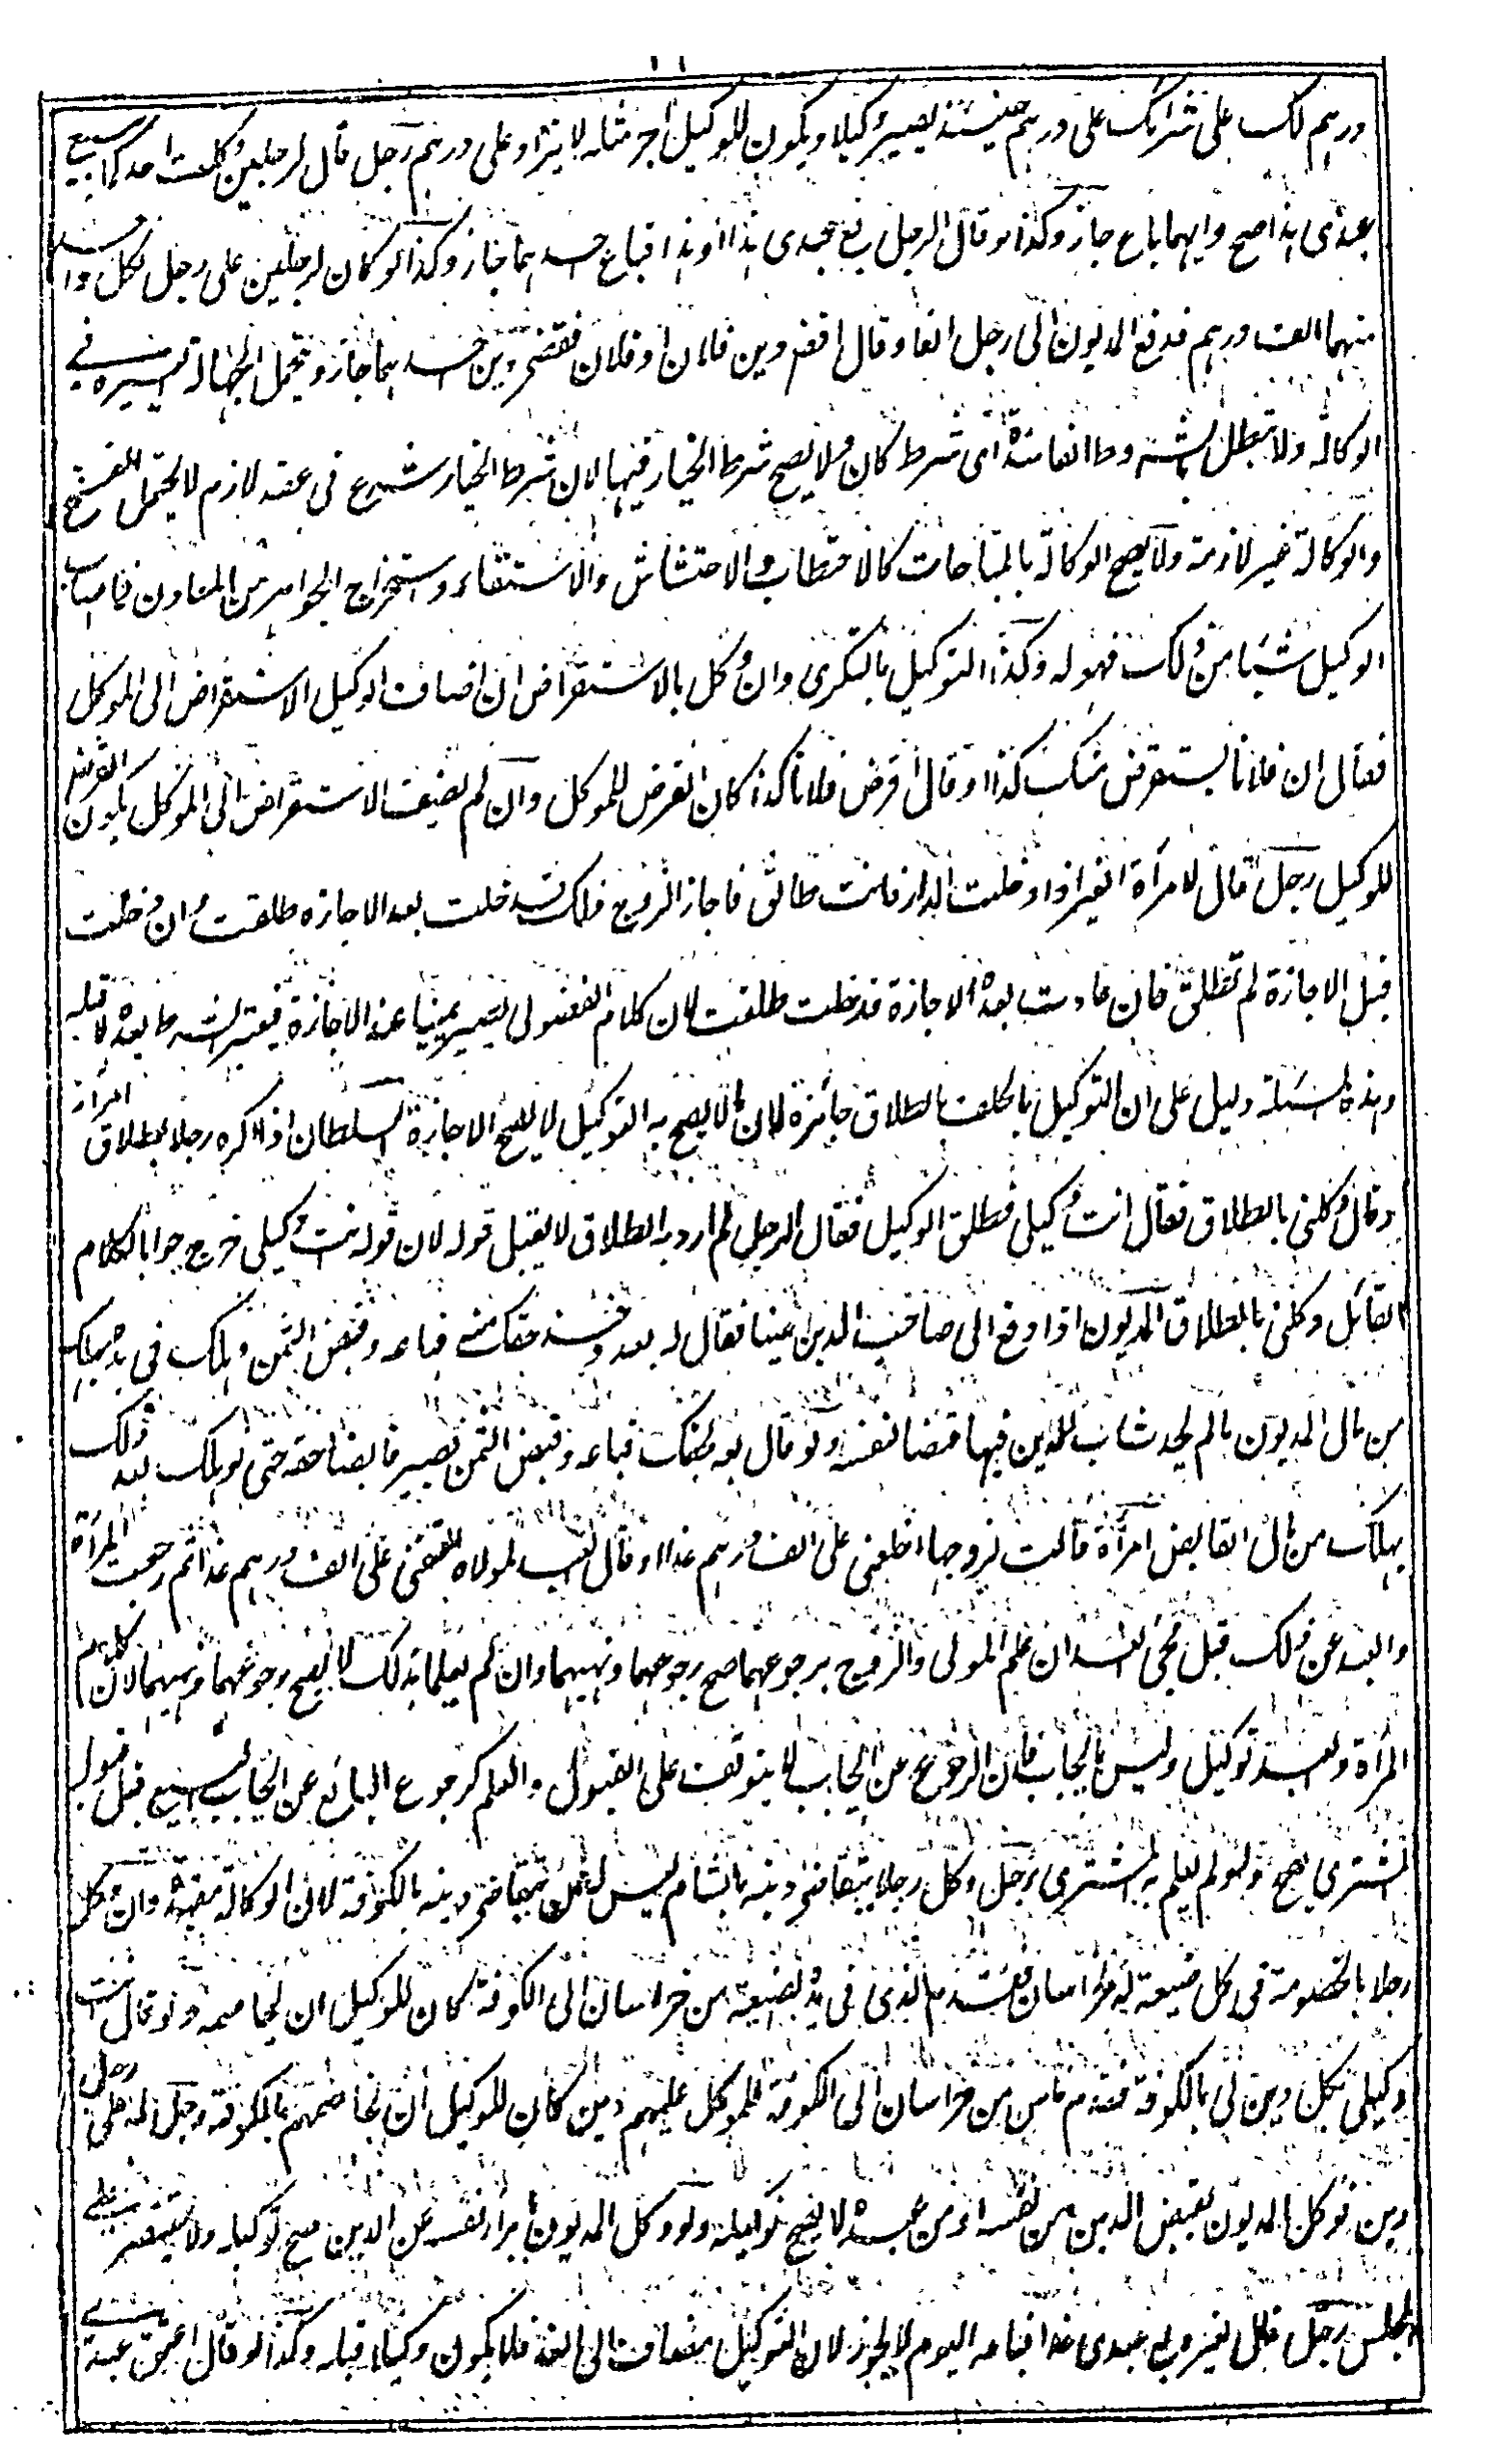 درهم لك على شرائك على درهم حينئذ يصير وكيلا ويكون للوكيل اجر مثله لا يزاد على درهم رجل قال لرجلين وكلت احدكما ببيع
عبدى هذا صح وايهما باع جاز وكذا لو قال الرجل بع عبدى هذا او هذا فباع احدهما جاز وكذا لو كان لرجلين على رجل لكل واحد
منهما الف درهم فدفع المديون الى رجل الفا وقال اقض دين فلان او فلان فقضى دين احدهما جاز وتتحمل الجهالة اليسيرة في
الوكالة ولا تبطل بالشروط الفاسدة اى شرط كان ولا يصح شرط الخيار فيها لان شرط الخيار شرع فى عقد لازم لا يحتمل الفسخ
والوكالة غير لازمة ولا يصح الوكالة بالمباحات كالاحتطاب والاحتشاش والاستقاء واستخراج الجواهر من المعادن فما اصاب
الوكيل شيئا من ذلك فهو له وكذا التوكيل بالتكدى وان وكل بالاستقراض ان اضاف الوكيل الاستقراض الى الموكل
فقال ان فلانا يستقرض منك كذا او قال اقرض فلانا كذا كان القرض للموكل وان لم يضف الاستقراض الى الموكل يكون القرض
للوكيل رجل قال لامرأة الغير اذا دخلت الدار فانت طالق فاجاز الزوج ذلك فدخلت بعد الاجازة طلقت وان دخلت
قبل الاجازة لم تطلق فان عادت بعد الاجازة فدخلت طلقت لان كلام الفضولى يصير يمينا عند الاجازة فيعتبر الشرط بعده لا قبله
وهذه المسئلة دليل على ان التوكيل بالحلف بالطلاق جائزة لان ما لا يصح به التوكيل لا يصح الاجازة السلطان اذا اكره رجلا بطلاق امرأته
وقال وكلنى بالطلاق فقال انت وكيلى فطلق الوكيل فقال الرجل لم ارد به الطلاق لا يقبل قوله لان قوله انت وكيلى خرج جوابا لكلام
القائل وكلنى بالطلاق المديون اذا دفع الى صاحب الدين عينا فقال له بعه وخذ حقك منه فباعه وقبض الثمن وهلك فى يده يهلك
من مال المديون ما لم يحدث رب الدين فيها قبضا لنفسه ولو قال بعه بحقك فباعه وقبض الثمن يصير قابضا حقه حتى لو هلك بعد ذلك
يهلك من مال القابض امرأة قالت لزوجها اخلعنى على الف درهم غدا او قال العبد لمولاه اعتقنى على الف درهم غدا ثم رجعت المرأة
والعبد عن ذلك قبل مجئ الغد ان علم المولى والزوج برجوعهما صح رجوعهما ونهيهما وان لم يعلما بذلك لا يصح رجوعهما ونهيهما لان كلام
المرأة والعبد توكيل وليس بايجاب فان الرجوع عن الايجاب لا يتوقف على القبول والعلم كرجوع البائع عن ايجاب البيع قبل قبول
المشترى يصح ولو لم يعلم به المشترى رجل وكل رجلا بتقاضى دينه بالشام ليس له ان يتقاضى دينه بالكوفة لان الوكالة مقيدة وان وكل
رجلا بالخصومة فى كل ضيعة له بخراسان فقدم الذى فى يده الضيعة من خراسان الى الكوفة كان للوكيل ان يخاصمه ولو قال انت
وكيلى بكل دين لى بالكوفة فقدم ناس من خراسان الى الكوفة للموكل عليهم دين كان للوكيل ان يخاصمهم بالكوفة رجل له على رجل
دين فوكل المديون بقبض الدين من نفسه او من عبده لا يصح توكيله ولو وكل المديون بابراء نفسه عن الدين صح توكيله ولا يقتصر على
المجلس رجل قال لغيره بع عبدى غدا فباعه اليوم لا يجوز لان التوكيل مضاف الى الغد فلا يكون وكيلا قبله وكذا لو قال اعتق عبدى